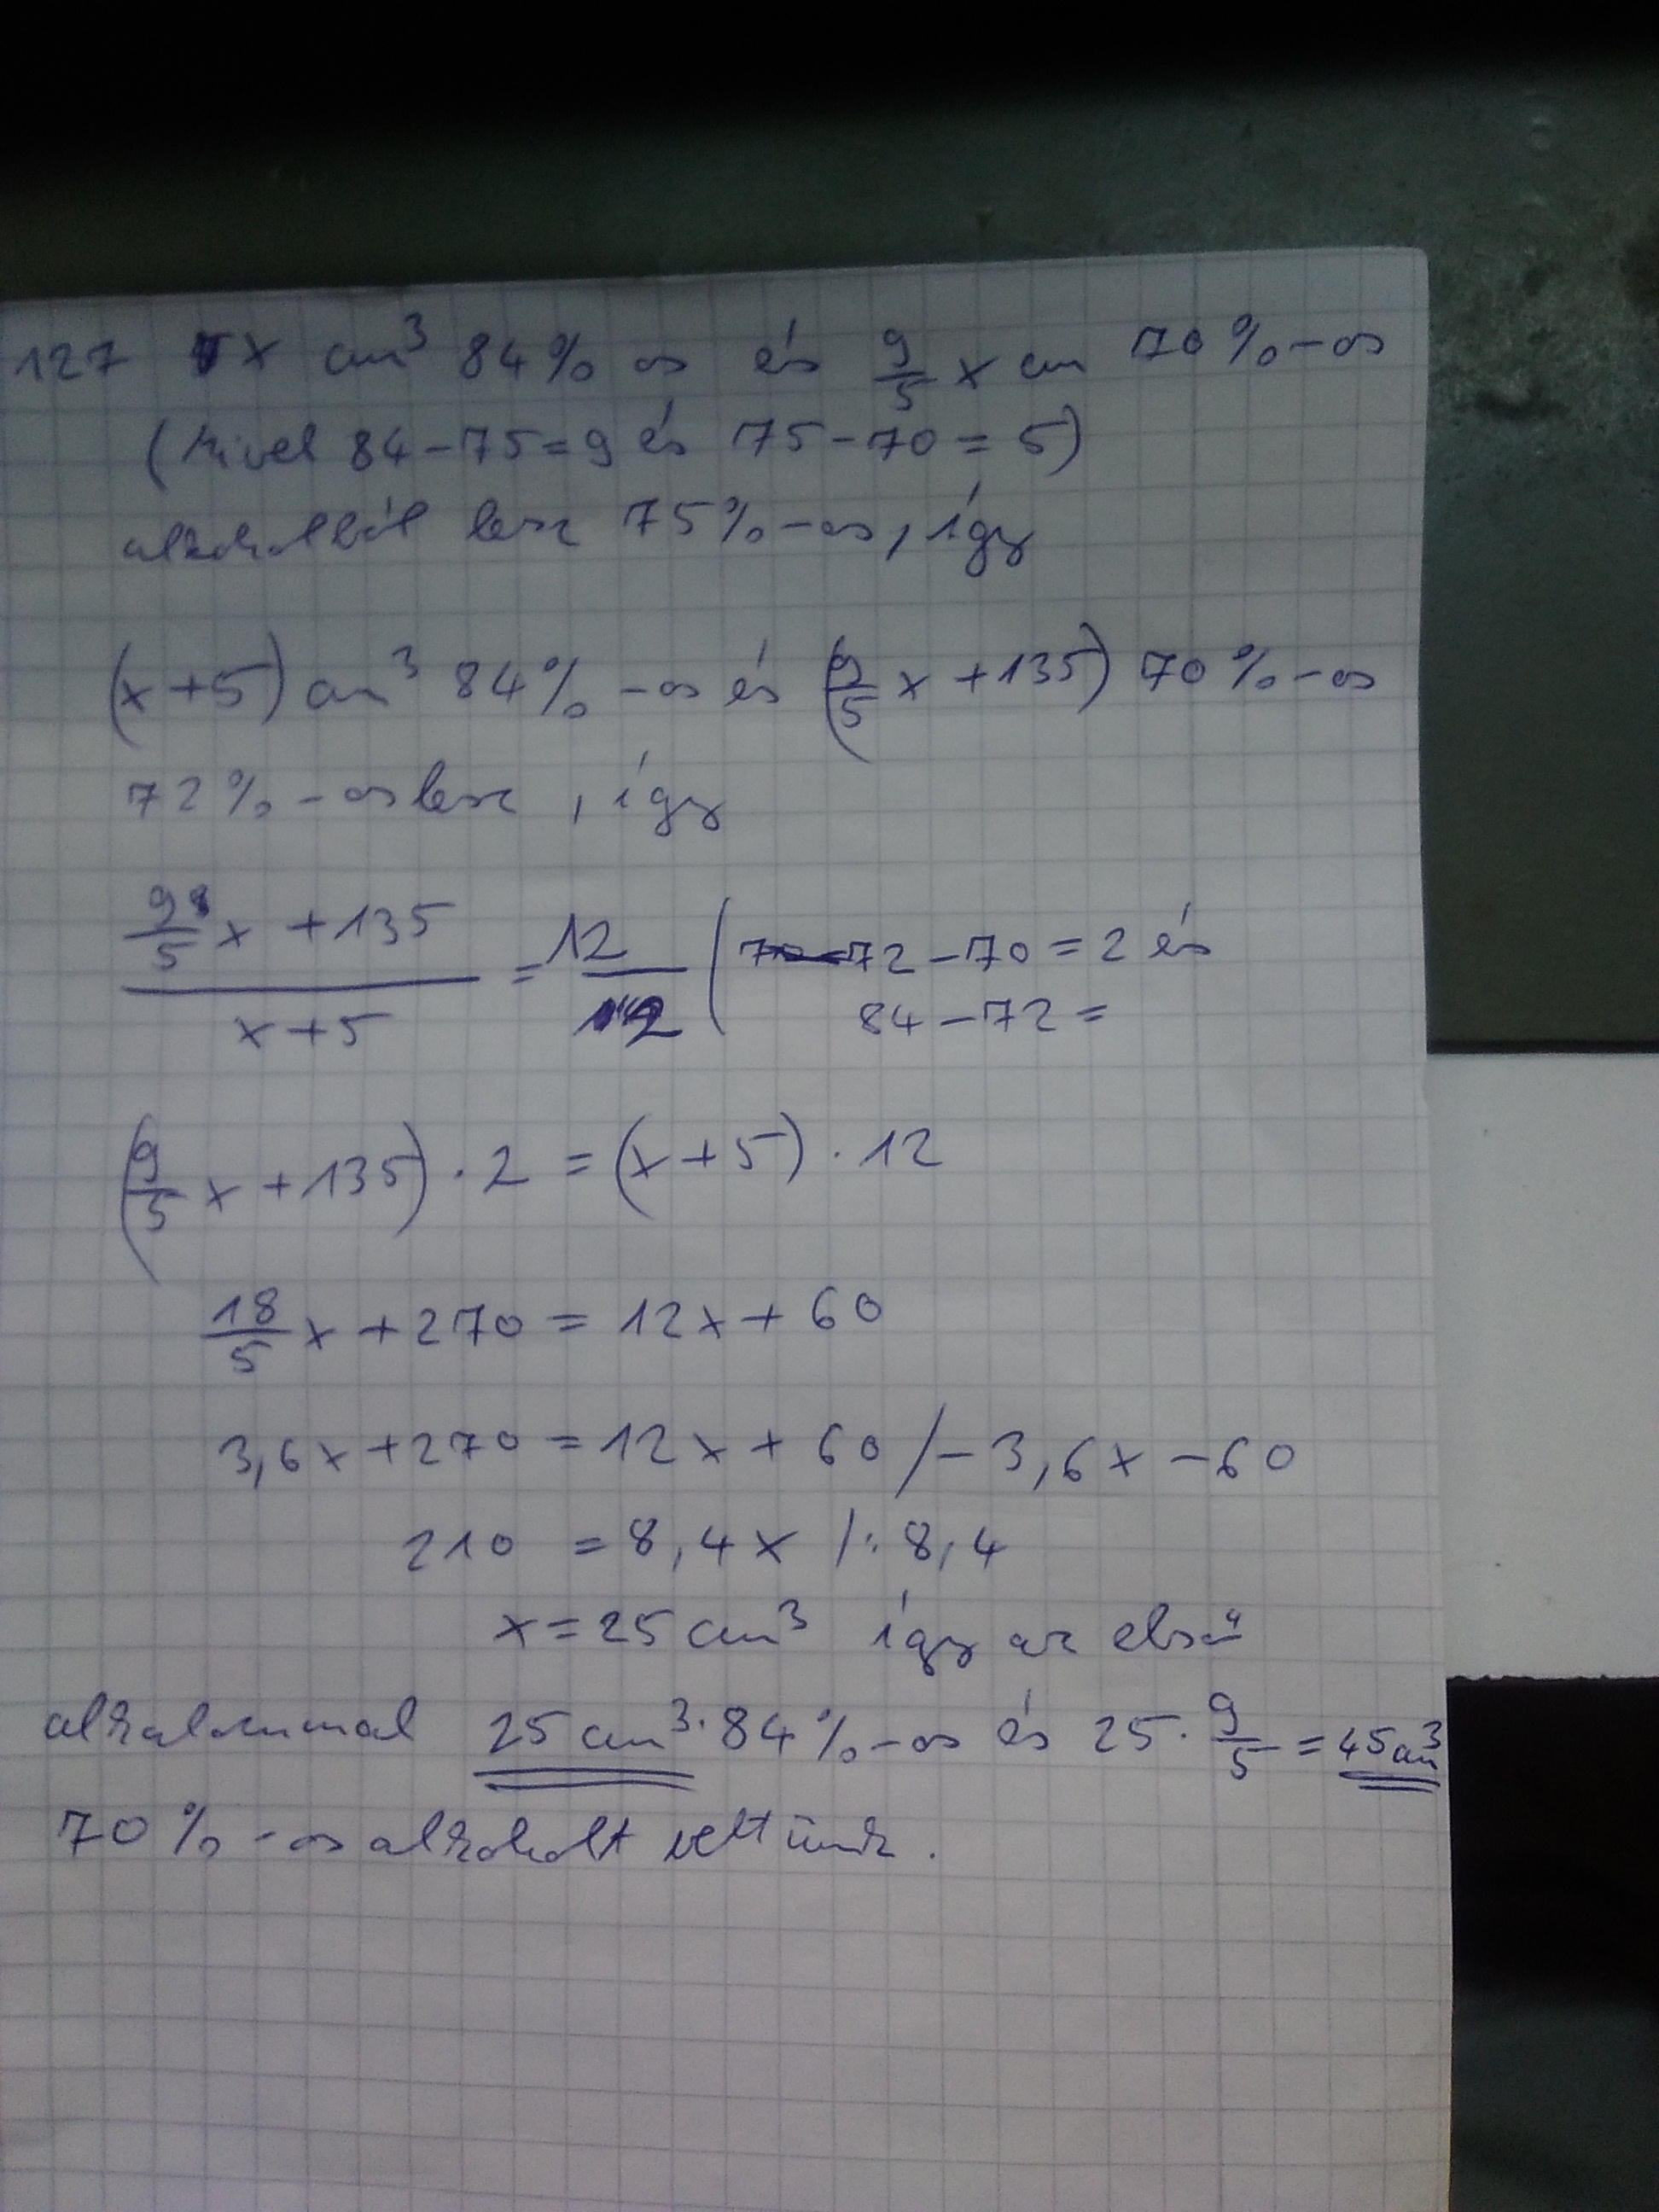 127 x cm³ 84% os és 9/5 x cm 70%-os
(Mivel 84-75=9 és 75-70=5)
alkoholból lesz 75%-os, így
(x+5) cm³ 84%-os és (9/5 x +135) 70%-os
72%-os lesz, így
(9/5 x +135)/(x+5) = 12/2 ( 72-70=2 és
84-72=
(9/5 x +135)·2 = (x+5)·12
18/5 x + 270 = 12x + 60
3,6x+270 = 12x + 60 /-3,6x -60
210 = 8,4x /:8,4
x=25 cm³ így az első
alkalommal 25 cm³· 84%-os és 25·9/5 = 45cm³
70%-os alkoholt vettünk.